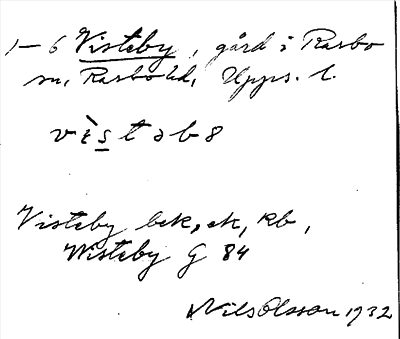 1–6 Visteby, gård i Rasbo
sn, Rasbo hd, Upps. l.
vìstəb8
Visteby bek, ek, kb,
Wisteby G 84
Nils Olsson 1932